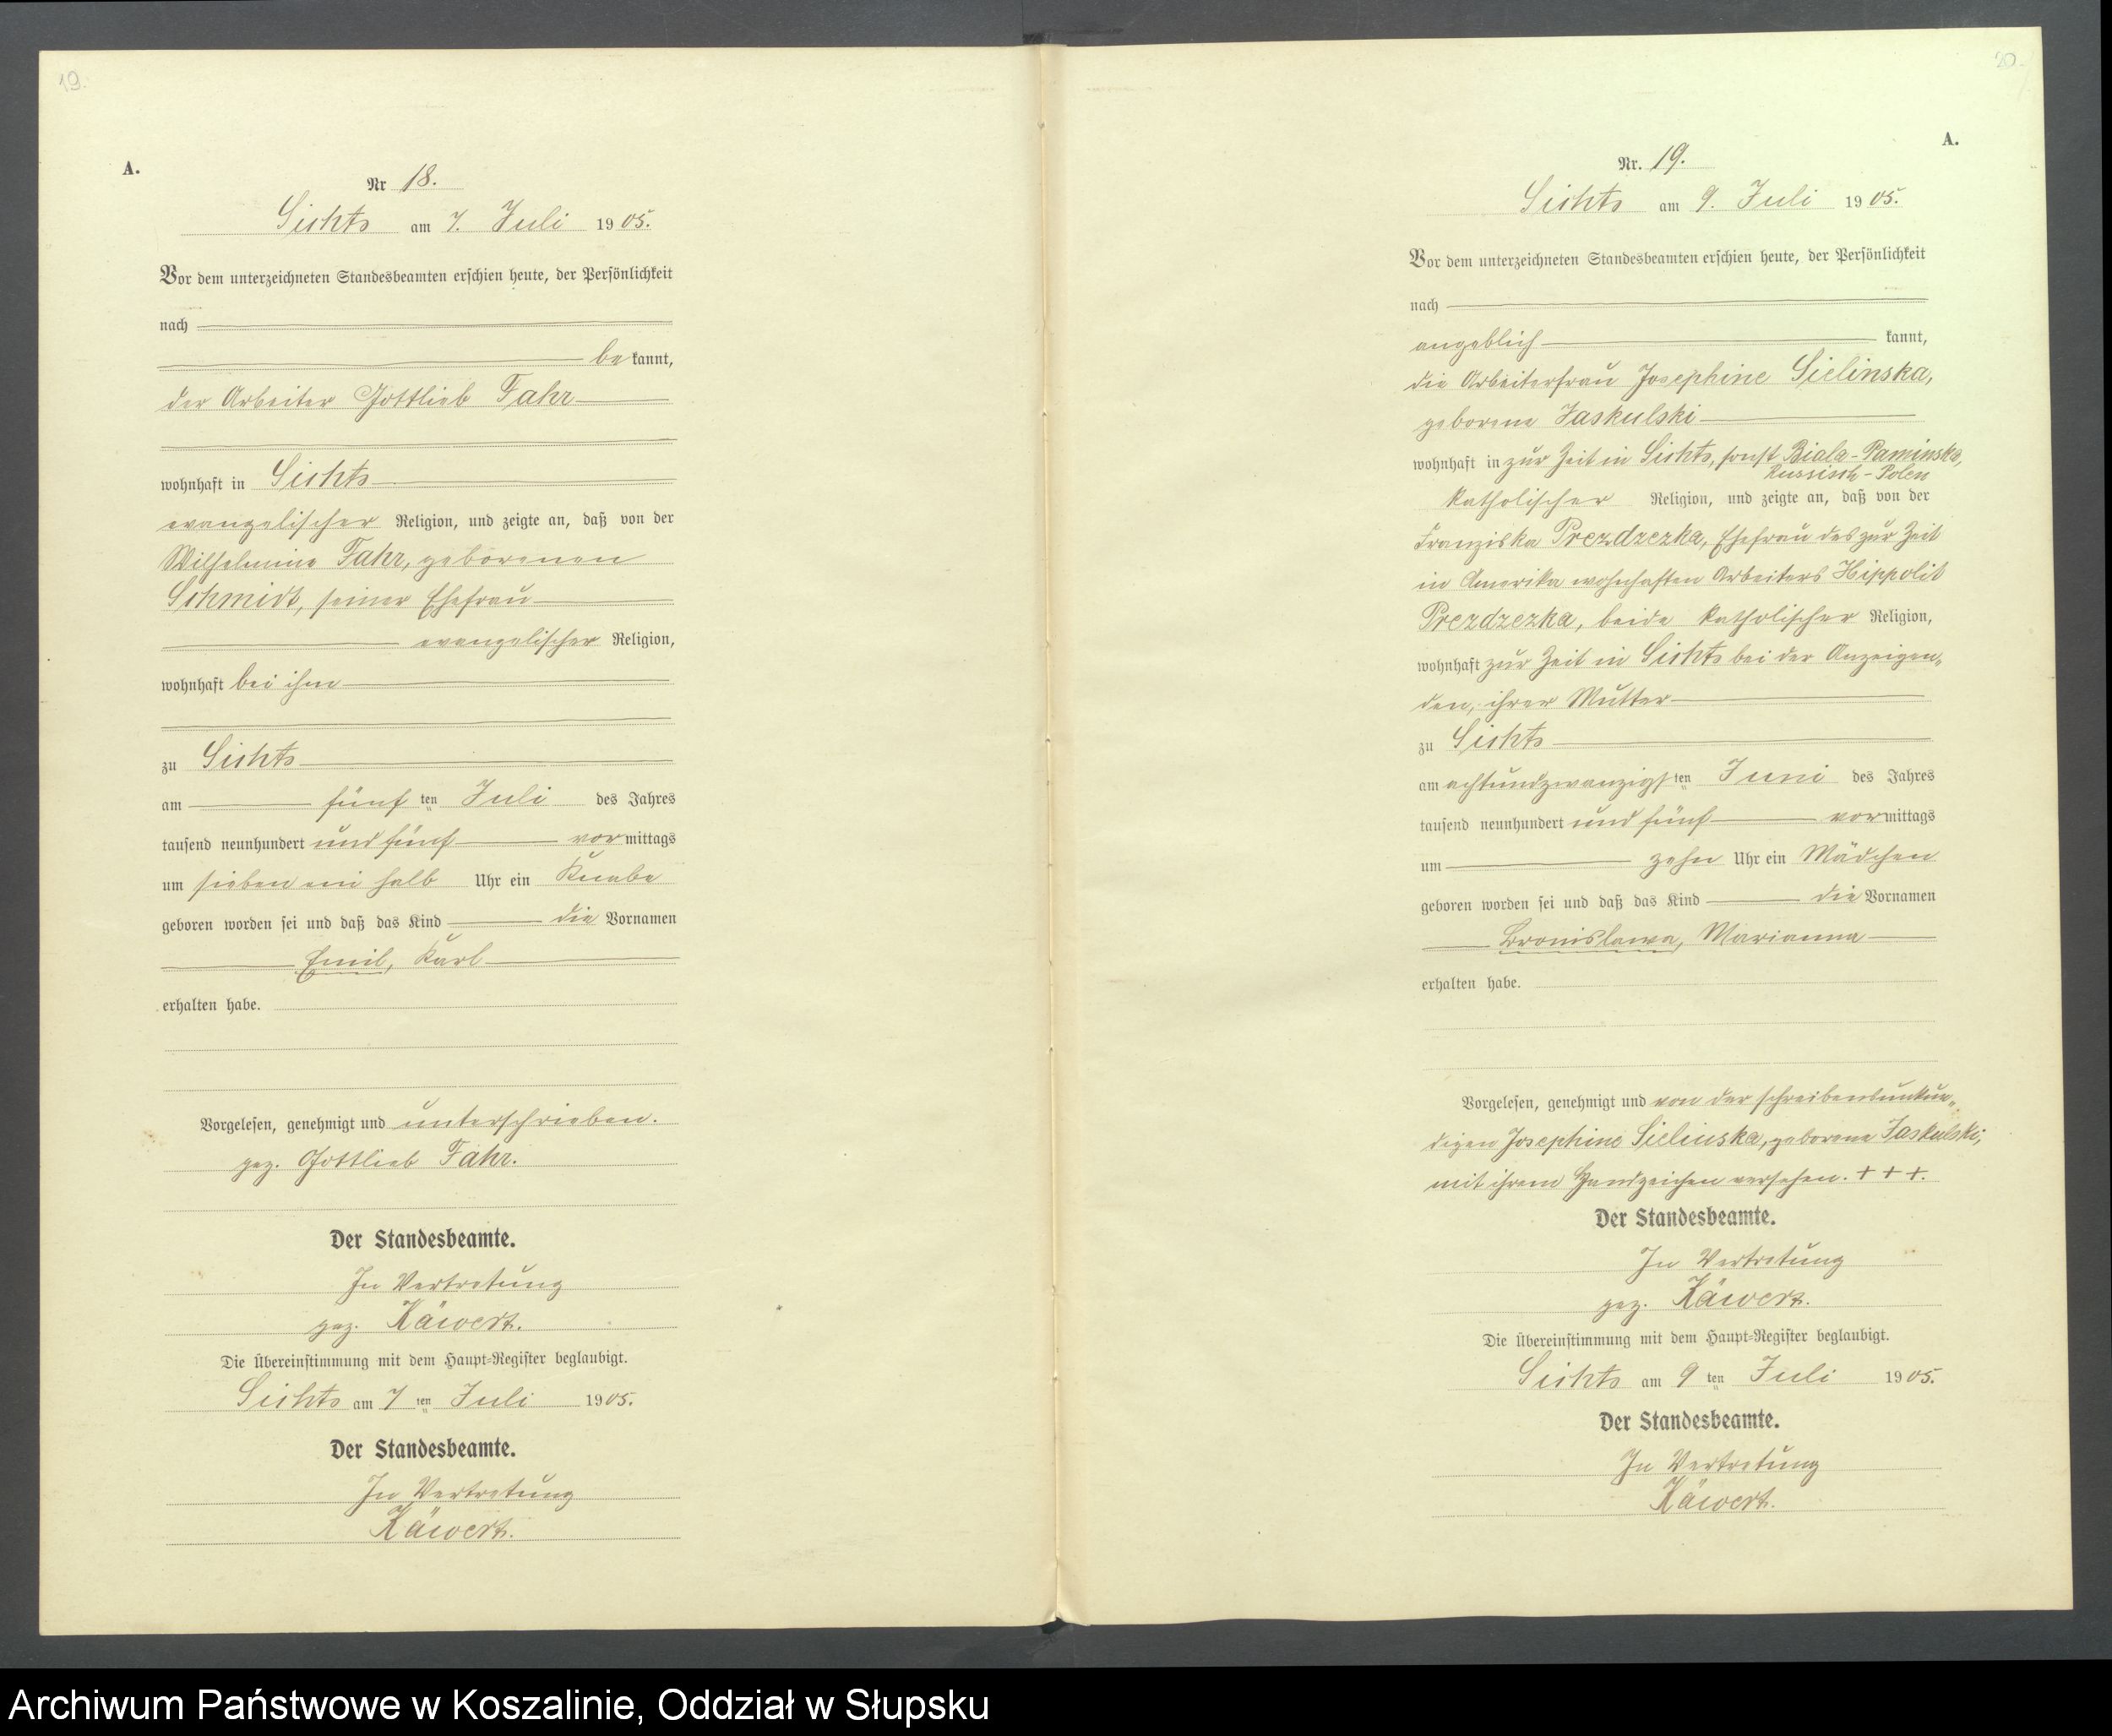 19.
A.
Nr 18.
Sichts am 7. Juli 1905.
Vor dem unterzeichneten Standesbeamten erschien heute, der Persönlichkeit
nach
bekannt,
der Arbeiter Gottlieb Fahr
wohnhaft in Sichts
evangelischer Religion, und zeigte an, daß von der
Wilhelmine Fahr, geborenen
Schmidt, seiner Ehefrau
evangelischer Religion,
wohnhaft bei ihm
zu Sichts
am fünften Juli des Jahres
tausend neunhundert und fünf vormittags
um sieben ein halb Uhr ein Knabe
geboren worden sei und daß das Kind die Vornamen
Emil, Karl
erhalten habe.
Vorgelesen, genehmigt und unterschrieben.
gez. Gottlieb Fahr.
Der Standesbeamte.
In Vertretung
gez. Käwert.
Die Übereinstimmung mit dem Haupt-Register beglaubigt.
Sichts am 7ten Juli 1905.
Der Standesbeamte.
In Vertretung
Käwert.
20.
A.
Nr. 19.
Sichts am 9. Juli 1905.
Vor dem unterzeichneten Standesbeamten erschien heute, der Persönlichkeit
nach
angeblich kannt,
die Arbeiterfrau Josephine Sielinska,
geborene Jaskulski
wohnhaft in zur Zeit in Sichts, sonst Biala-Paminska,
Russisch-Polen
katholischer Religion, und zeigte an, daß von der
Franziska Prezdzezka, Ehefrau des zur Zeit
in Amerika wohnhaften Arbeiters Hippolit
Prezdzezka, beide katholischer Religion,
wohnhaft zur Zeit in Sichts bei der Anzeigen„
den, ihrer Mutter
zu Sichts
am achtundzwanzigsten Juni des Jahres
tausend neunhundert und fünf vormittags
um zehn Uhr ein Mädchen
geboren worden sei und daß das Kind die Vornamen
Bronislawa, Marianna
erhalten habe.
Vorgelesen, genehmigt und von der schreibensunkun„
digen Josephine Sielinska, geborene Jaskulski,
mit ihrem Handzeichen versehen. + + +.
Der Standesbeamte.
In Vertretung
gez. Käwert.
Die Übereinstimmung mit dem Haupt-Register beglaubigt.
Sichts am 9ten Juli 1905.
Der Standesbeamte.
In Vertretung
Käwert.
Archiwum Państwowe w Koszalinie, Oddział w Słupsku